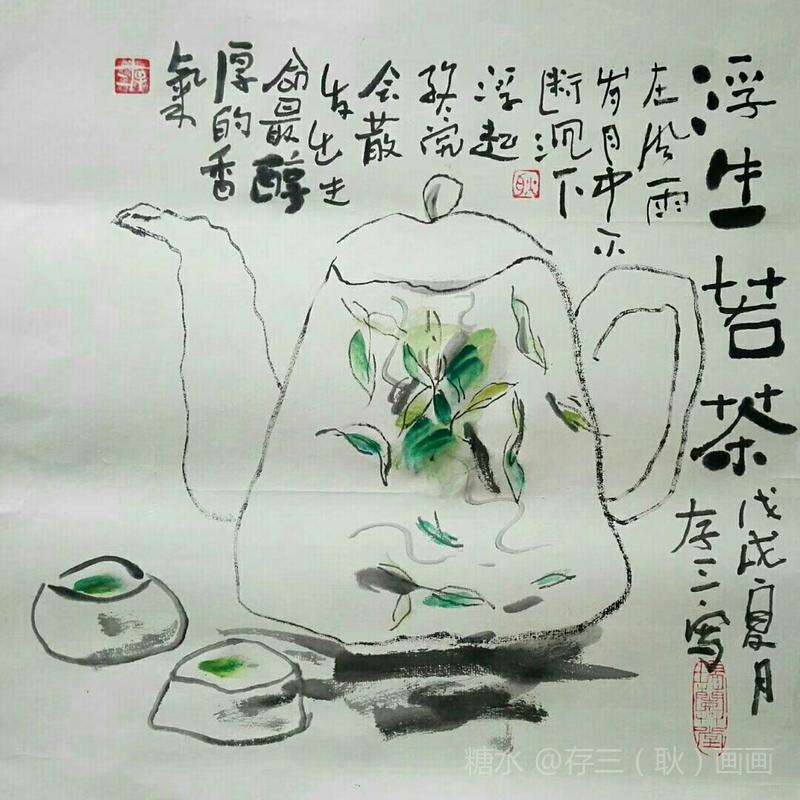 浮生若茶
在风雨
岁月中不
断沉下
浮起
终究
会散
发出生
命最醇
厚的香
氣
戊戌夏月
存三写
耿
糖水 @存三（耿）画画